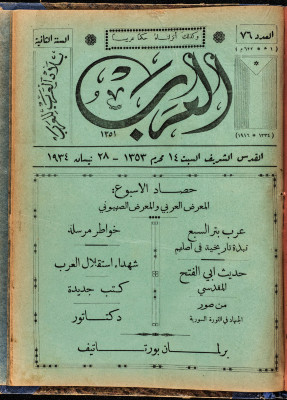 العدد ٧٦
وكذلك أنزلناه حكما عربيا
السنة الثانية
بلاد العرب للعرب
العرب
١٣٥١
(١٣٣٤ * * ١٩١٦)
القدس الشريف السبت ١٤ محرم ١٣٥٣ – ٢٨ نيسان ١٩٣٤
حصاد الاسبوع:
المعرض العربي والمعرض الصهيوني
عرب بئر السبع
نبذة تاريخية في أصلهم
خواطر مرسلة
حديث ابي الفتح
المقدسي
شهداء استقلال العرب
من صور
الجهاد في الثورة السورية
كتب جديدة
دكتاتور
برلمان بورتاتيف